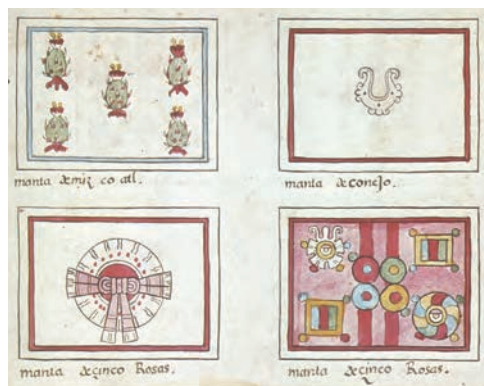 manta de miz co atl.
manta de conejo.
manta de çinco Rosas.
manta de çinco Rosas.